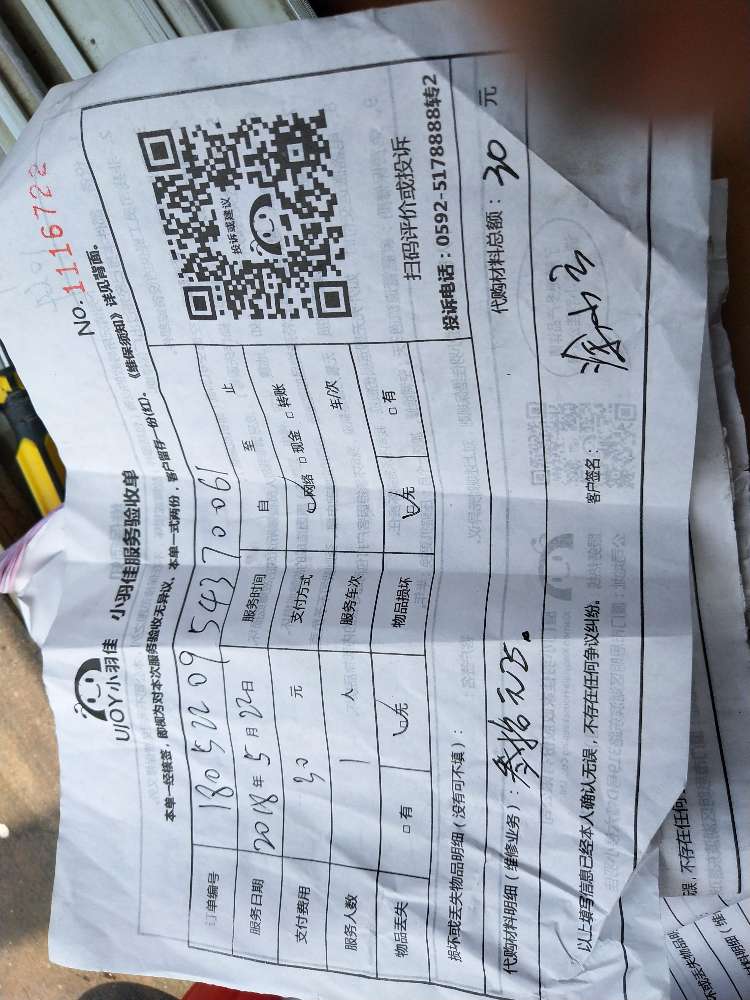 No. 1116722
UJOY小羽佳 小羽佳服务验收单
本单一经核签，即视为对本次服务验收无异议、本单一式两份，客户留存一份(红)。《维保须知》详见背面。
订单编号 18052209 54370061
服务日期 2018年5月22日 服务时间 自 至 止
支付费用 30 元 支付方式 ☑网络 □现金 □转账
服务人数 1 人 服务车次 车/次
物品丢失 □有 ☑无 物品损坏 ☑无 □有
投诉或建议
扫码评价或投诉
投诉电话：0592-5178888转2
损坏或丢失物品明细（没有可不填）：
代购材料明细（维修业务）：叁拾元正。 代购材料总额：30 元
以上填写信息已经本人确认无误，不存在任何争议纠纷。 客户签名：
误，不存在任何